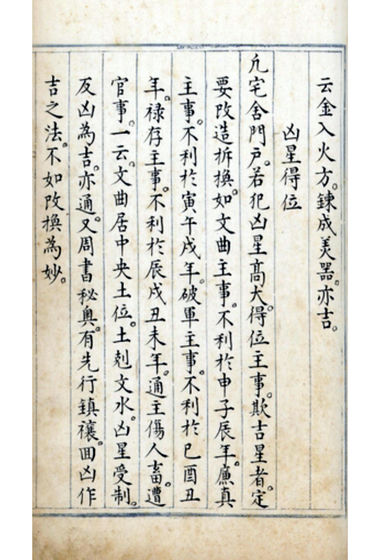 云金入火方。鍊成美器。亦吉。
凶星得位
凢宅舍門戶。若犯凶星高大。得位主事。欺吉星者。定
要改造拆換。如文曲主事。不利於申子辰年。廉真
主事。不利於寅午戌年。破軍主事。不利於巳酉丑
年。祿存主事。不利於辰戌丑未年。通主傷人畜。遭
官事。一云。文曲居中央土位。土剋文水。凶星受制。
反凶為吉。亦通。又周書秘奧。有先行鎮禳。囬凶作
吉之法。不如改換為妙。